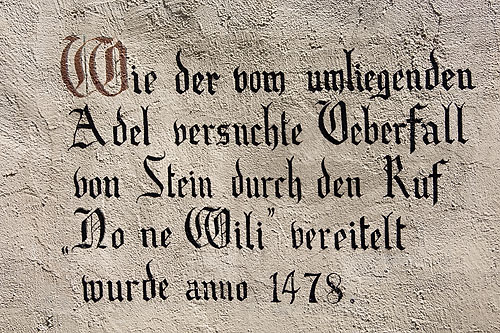 Wie der vom umliegenden
Adel versuchte Ueberfall
von Stein durch den Ruf
„No ne Wili” vereitelt
wurde anno 1478.